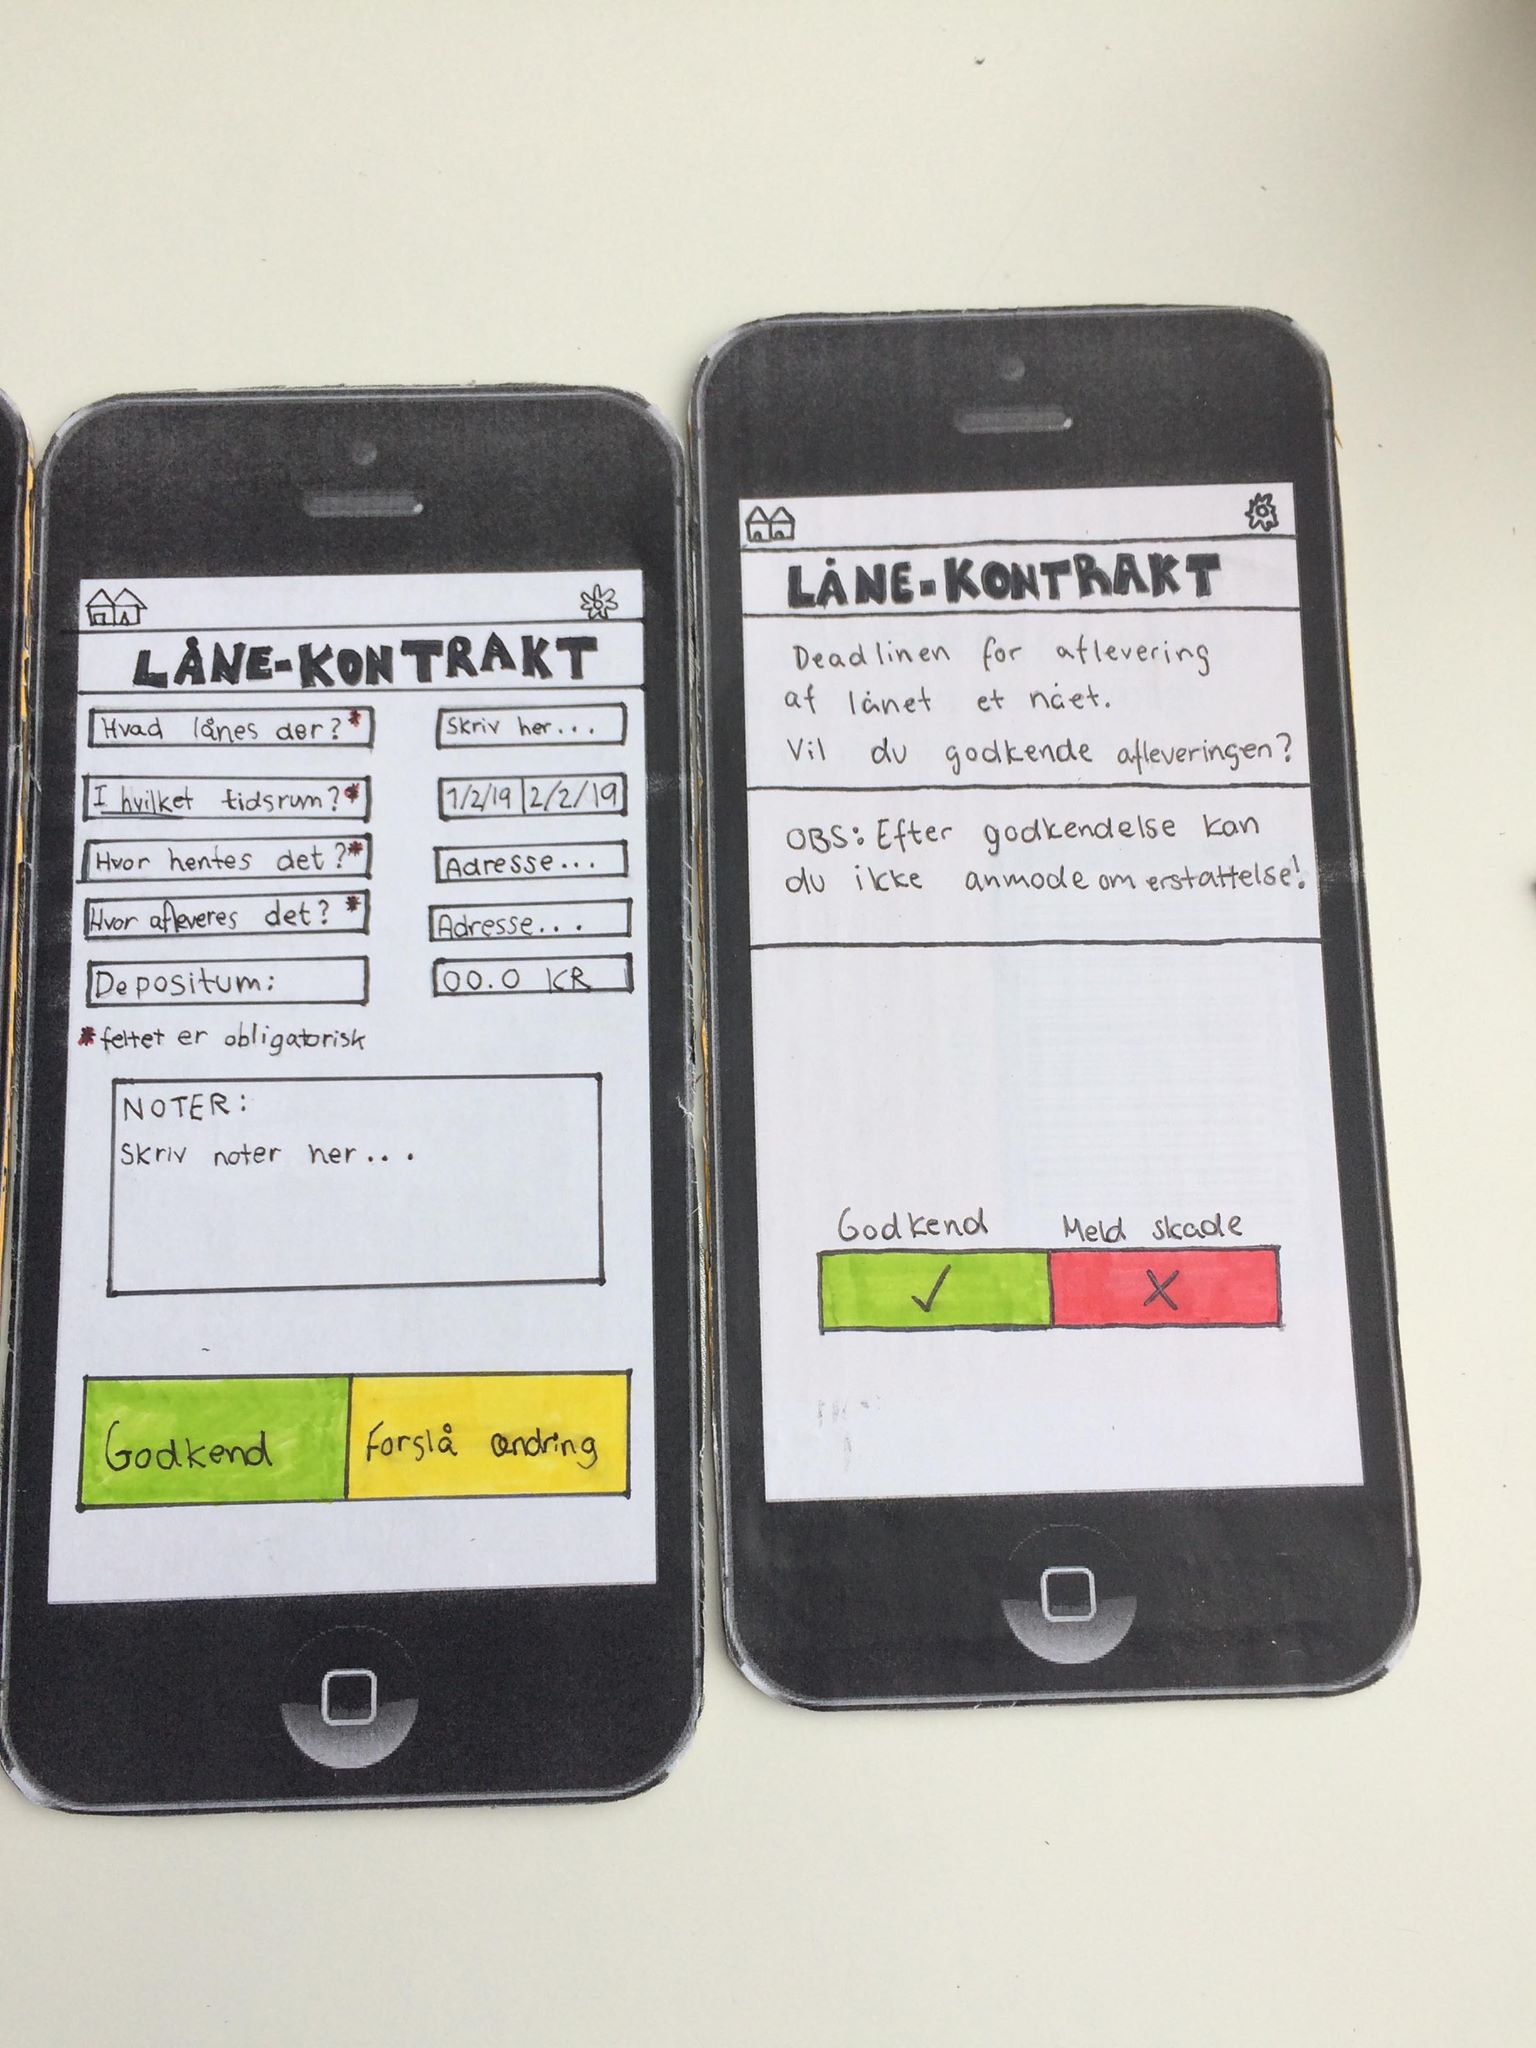 LÅNE-KONTRAKT
Hvad lånes der?* Skriv her...
I hvilket tidsrum?* 1/2/19 2/2/19
Hvor hentes det?* Adresse...
Hvor afleveres det?* Adresse...
Depositum: 00.0 KR
*feltet er obligatorisk
NOTER:
Skriv noter her...
Godkend Forslå ændring
LÅNE-KONTRAKT
Deadlinen for aflevering
af lånet et nået.
Vil du godkende afleveringen?
OBS: Efter godkendelse kan
du ikke anmode om erstattelse!
Godkend Meld skade
✓ X